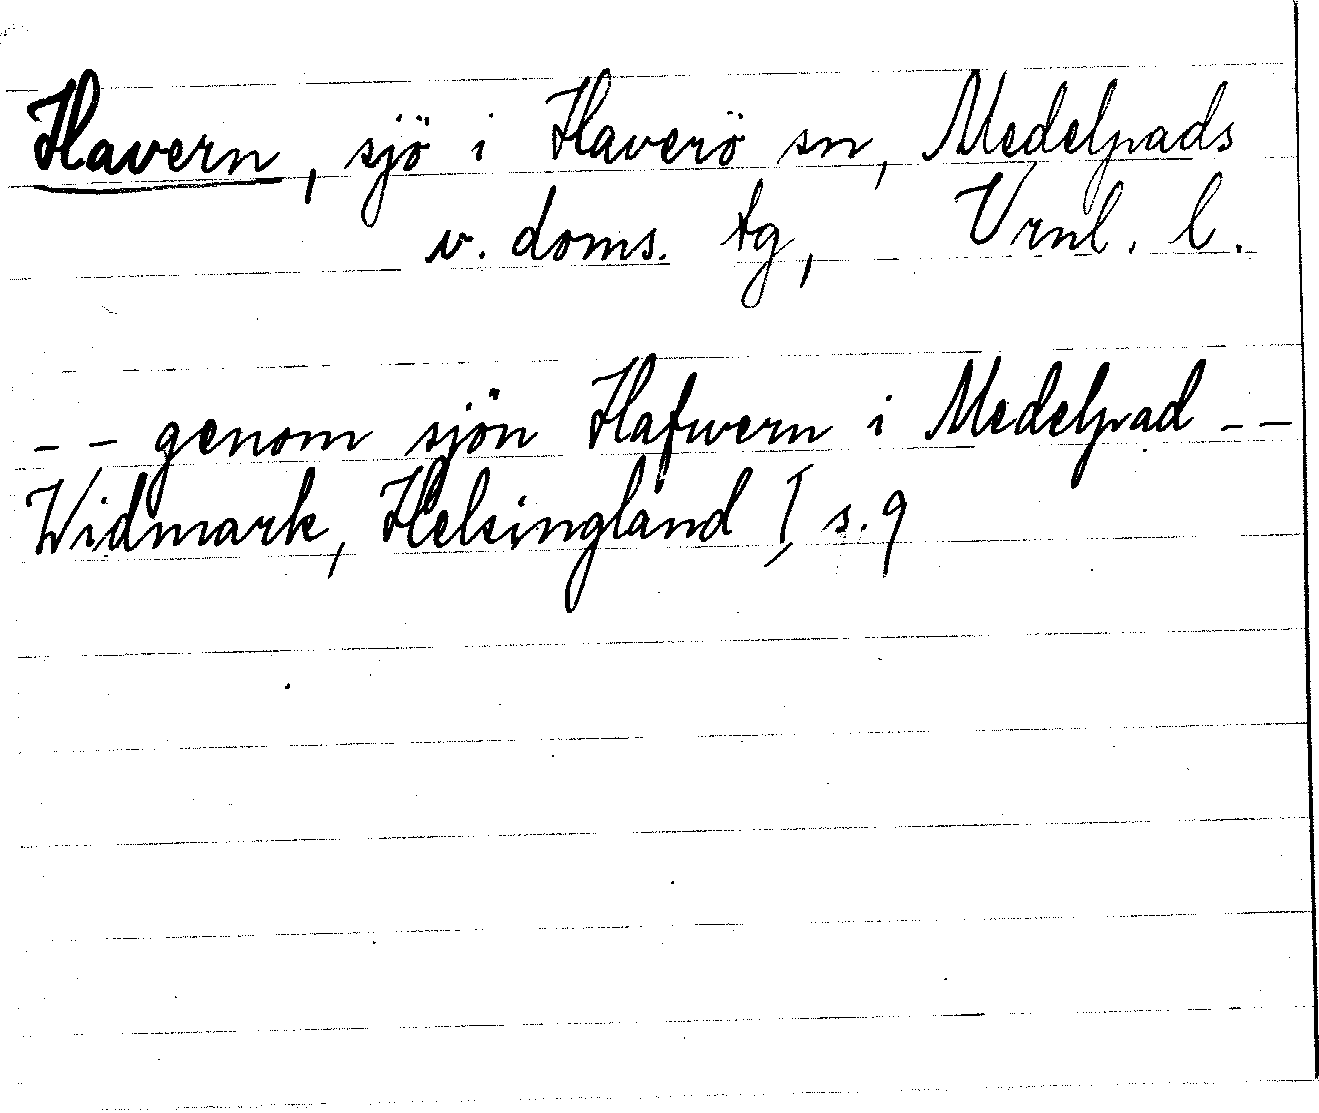 Havern, sjö i Haverö sn, Medelpads
v. doms. tg, Vrnl. l.
- - genom sjön Hafwern i Medelpad - -
Widmark, Helsingland I, s. 9